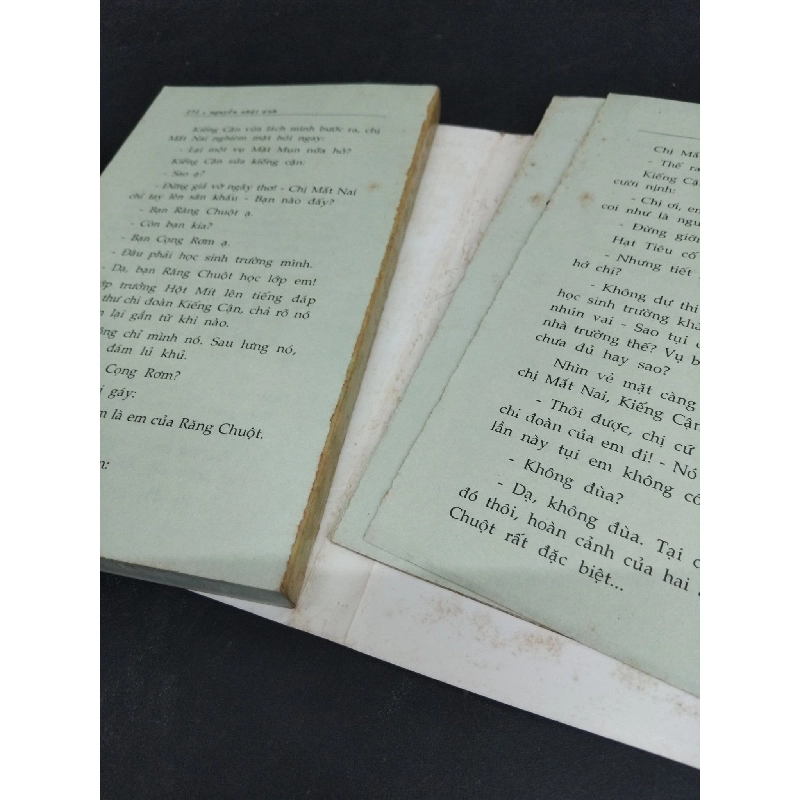 272 • nguyễn nhật ánh
Kiếng Cận vừa lách mình bước ra, chị
Mắt Nai nghiêm mặt hỏi ngay:
- Lại một vụ Mặt Mụn nữa hở?
Kiếng Cận sửa kiếng cận:
- Sao ạ?
- Đừng giả vờ ngây thơ! - Chị Mắt Nai
chỉ tay lên sân khấu - Bạn nào đấy?
- Bạn Răng Chuột ạ.
- Còn bạn kia?
- Bạn Cọng Rơm ạ.
- Đâu phải học sinh trường mình.
- Dạ, bạn Răng Chuột học lớp em!
trưởng Hột Mít lên tiếng đáp
thư chi đoàn Kiếng Cận, chả rõ nó
lại gần từ khi nào.
chỉ mình nó. Sau lưng nó,
đám lủ khủ.
Cọng Rơm?
gáy:
là em của Răng Chuột.
Chị Mắ
- Thế ra
Kiếng Cậ
cười nịnh:
- Chị ơi, em
coi như là ngư
- Đừng giỡn
Hạt Tiêu cố
- Nhưng tiết
hở chị?
- Không dự thi
học sinh trường khá
nhún vai - Sao tụi
nhà trường thế? Vụ b
chưa đủ hay sao?
Nhìn vẻ mặt càng
chị Mắt Nai, Kiếng Cận
- Thôi được, chị cứ
chi đoàn của em đi! - Nó
lần này tụi em không cố
- Không đùa?
- Dạ, không đùa. Tại c
đó thôi, hoàn cảnh của hai
Chuột rất đặc biệt...